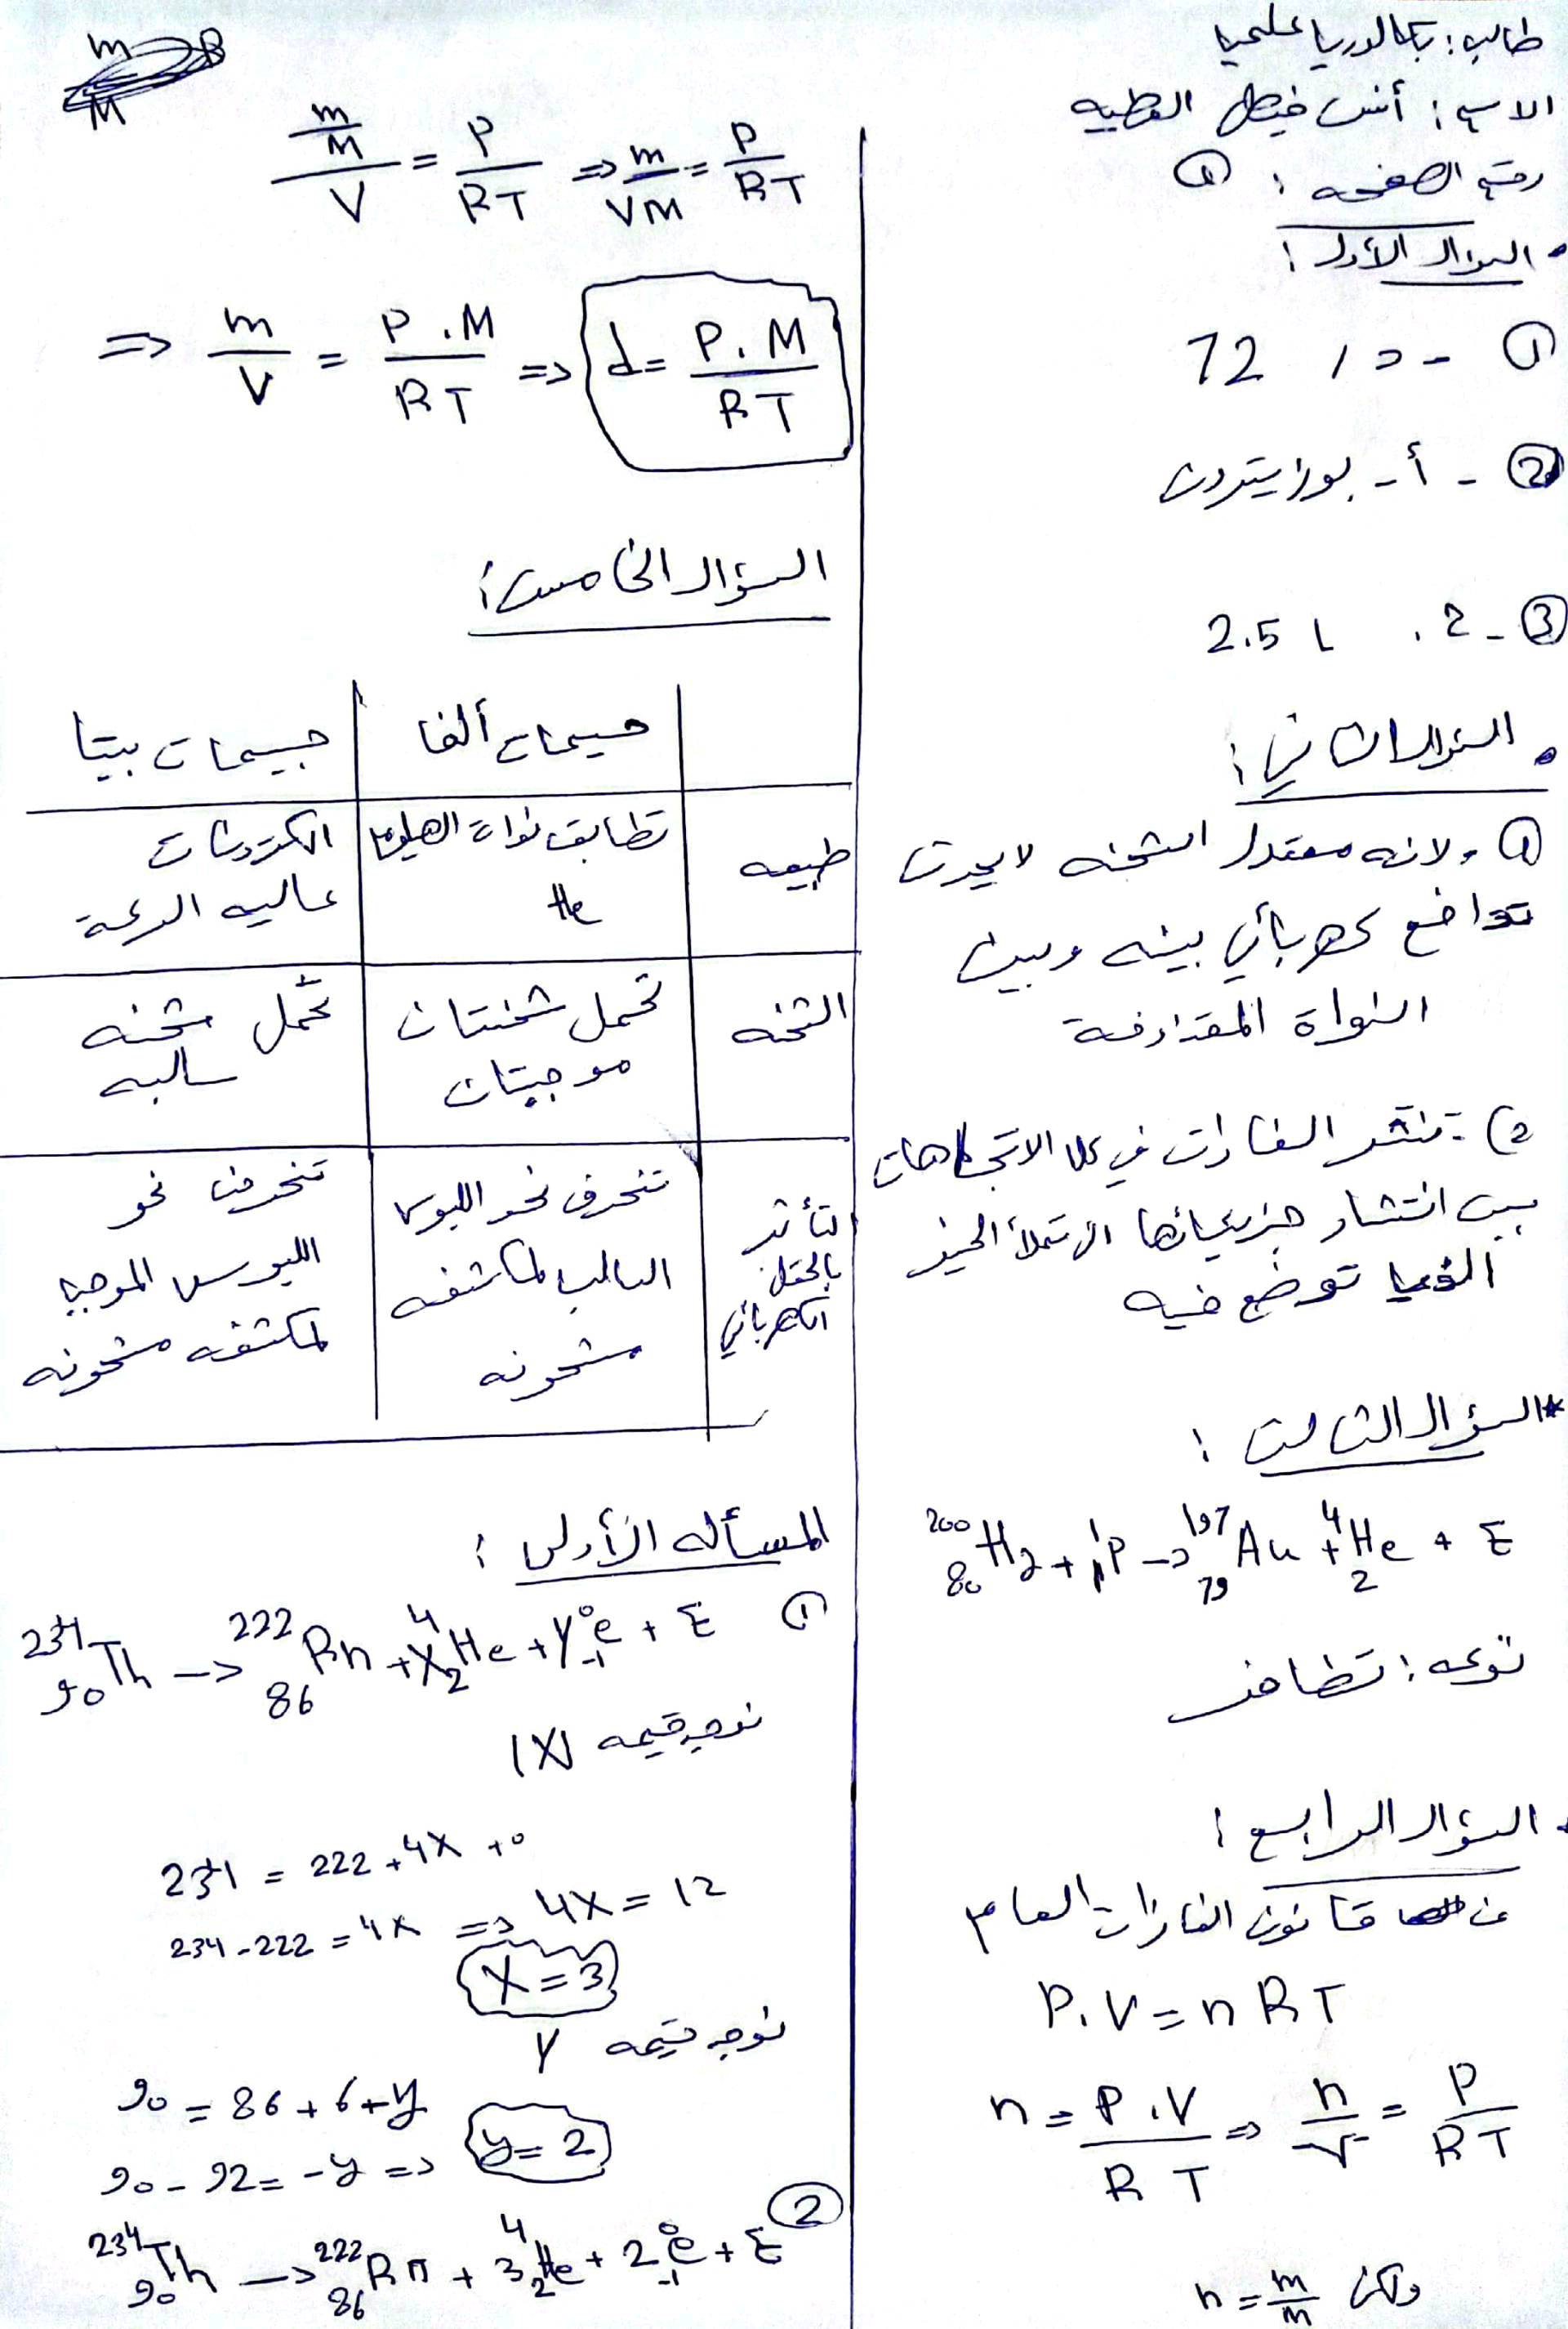 طالب: بكالوريا علميا
الاسم: أنس فيصل القطيه
رقم الصفحه: ①
• السؤال الأول:
① - د، 72
② - أ - بوزيترون
③ - 2. 2.5 L
• السؤال الثاني:
① ولانه معتدل الشحنه لا يحدث
تدافع كهربائي بينه وبين
النواة المقذوفة
2) - تنتشر الغازات في كل الاتجاهات
بسبب انتشار جزيئاتها الى تملأ الحيز
الذي توضع فيه
* السؤال الثالث:
²⁰⁰₈₀Hg + ¹₁P -> ¹⁹⁷₇₉Au + ⁴₂He + E
نوعه: تطافر
• السؤال الرابع:
من قانون الغازات العام
P.V = n R T
n = P.V / R T => n / V = P / R T
ولكن n = m / m
m / M / V = P / R T => m / V M = P / R T
=> m / V = P.M / R T => d = P.M / R T
السؤال الخامس:
جسيمات ألفا | جسيمات بيتا
طبيعه | تطابق نواة الهليوم He | الكترونات عاليه السرعة
الشحنه | تحمل شحنتان موجبتان | تحمل شحنه سالبه
التأثر بالحقل الكهربائي | تنحرف نحو اللبوس السالب لمكثفه مشحونه | تنحرف نحو اللبوس الموجب لمكثفه مشحونه
المسأله الأولى:
① ²³⁴₉₀Th -> ²²²₈₆Rn + X⁴₂He + Y⁰₋₁e + E
نوجد قيمه |X|
234 = 222 + 4X + 0
234 - 222 = 4X => 4X = 12
X = 3
نوجد قيمه Y
90 = 86 + 6 + y
90 - 92 = -y => y = 2
② ²³⁴₉₀Th -> ²²²₈₆Rn + 3⁴₂He + 2⁰₋₁e + E